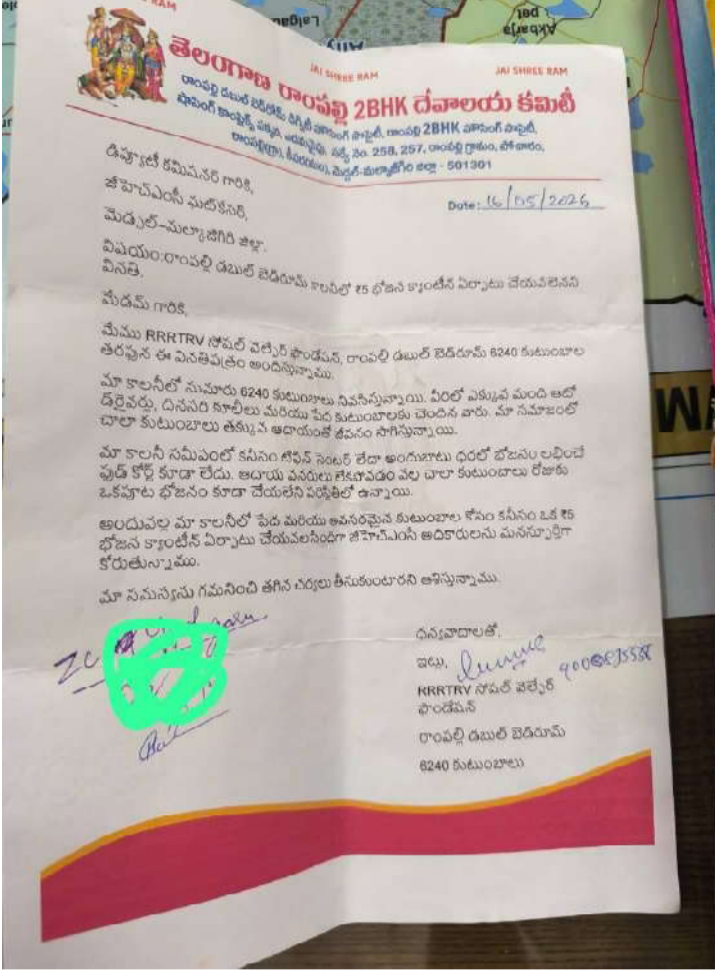 JAI SHREE RAM
JAI SHREE RAM
తెలంగాణ రాంపల్లి 2BHK దేవాలయ కమిటీ
రాంపల్లి డబుల్ బెడ్‌రూమ్ డిగ్నిటీ హౌసింగ్ సొసైటీ, రాంపల్లి 2BHK హౌసింగ్ సొసైటీ,
షాపింగ్ కాంప్లెక్స్ పక్కన సర్వే నం. 258, 257, రాంపల్లి గ్రామం, పోచారం,
రాంపల్లి(గ్రా), కీసర(మం), మేడ్చల్-మల్కాజ్‌గిరి జిల్లా - 501301
డిప్యూటీ కమిషనర్ గారికి,
Date: 16/05/2026
జీహెచ్ఎంసీ ఘట్‌కేసర్,
మేడ్చల్-మల్కాజిగిరి జిల్లా.
విషయం:రాంపల్లి డబుల్ బెడ్‌రూమ్ కాలనీలో ₹5 భోజన క్యాంటీన్ ఏర్పాటు చేయవలెనని
వినతి.
మేడమ్ గారికి,
మేము RRRTRV సోషల్ వెల్ఫేర్ ఫౌండేషన్, రాంపల్లి డబుల్ బెడ్‌రూమ్ 6240 కుటుంబాల
తరపున ఈ వినతిపత్రం అందిస్తున్నాము.
మా కాలనీలో సుమారు 6240 కుటుంబాలు నివసిస్తున్నాయి. వీరిలో ఎక్కువ మంది ఆటో
డ్రైవర్లు, దినసరి కూలీలు మరియు పేద కుటుంబాలకు చెందిన వారు. మా సమాజంలో
చాలా కుటుంబాలు తక్కువ ఆదాయంతో జీవనం సాగిస్తున్నాయి.
మా కాలనీ సమీపంలో కనీసం టిఫిన్ సెంటర్ లేదా అందుబాటు ధరలో భోజనం లభించే
ఫుడ్ కోర్ట్ కూడా లేదు. ఆదాయ వనరులు లేకపోవడం వల్ల చాలా కుటుంబాలు రోజుకు
ఒకపూట భోజనం కూడా చేయలేని పరిస్థితిలో ఉన్నాయి.
అందువల్ల మా కాలనీలో పేద మరియు అవసరమైన కుటుంబాల కోసం కనీసం ఒక ₹5
భోజన క్యాంటీన్ ఏర్పాటు చేయవలసిందిగా జీహెచ్ఎంసీ అధికారులను మనస్ఫూర్తిగా
కోరుతున్నాము.
మా సమస్యను గమనించి తగిన చర్యలు తీసుకుంటారని ఆశిస్తున్నాము.
ధన్యవాదాలతో,
ఇట్లు,
RRRTRV సోషల్ వెల్ఫేర్
ఫౌండేషన్
రాంపల్లి డబుల్ బెడ్‌రూమ్
6240 కుటుంబాలు